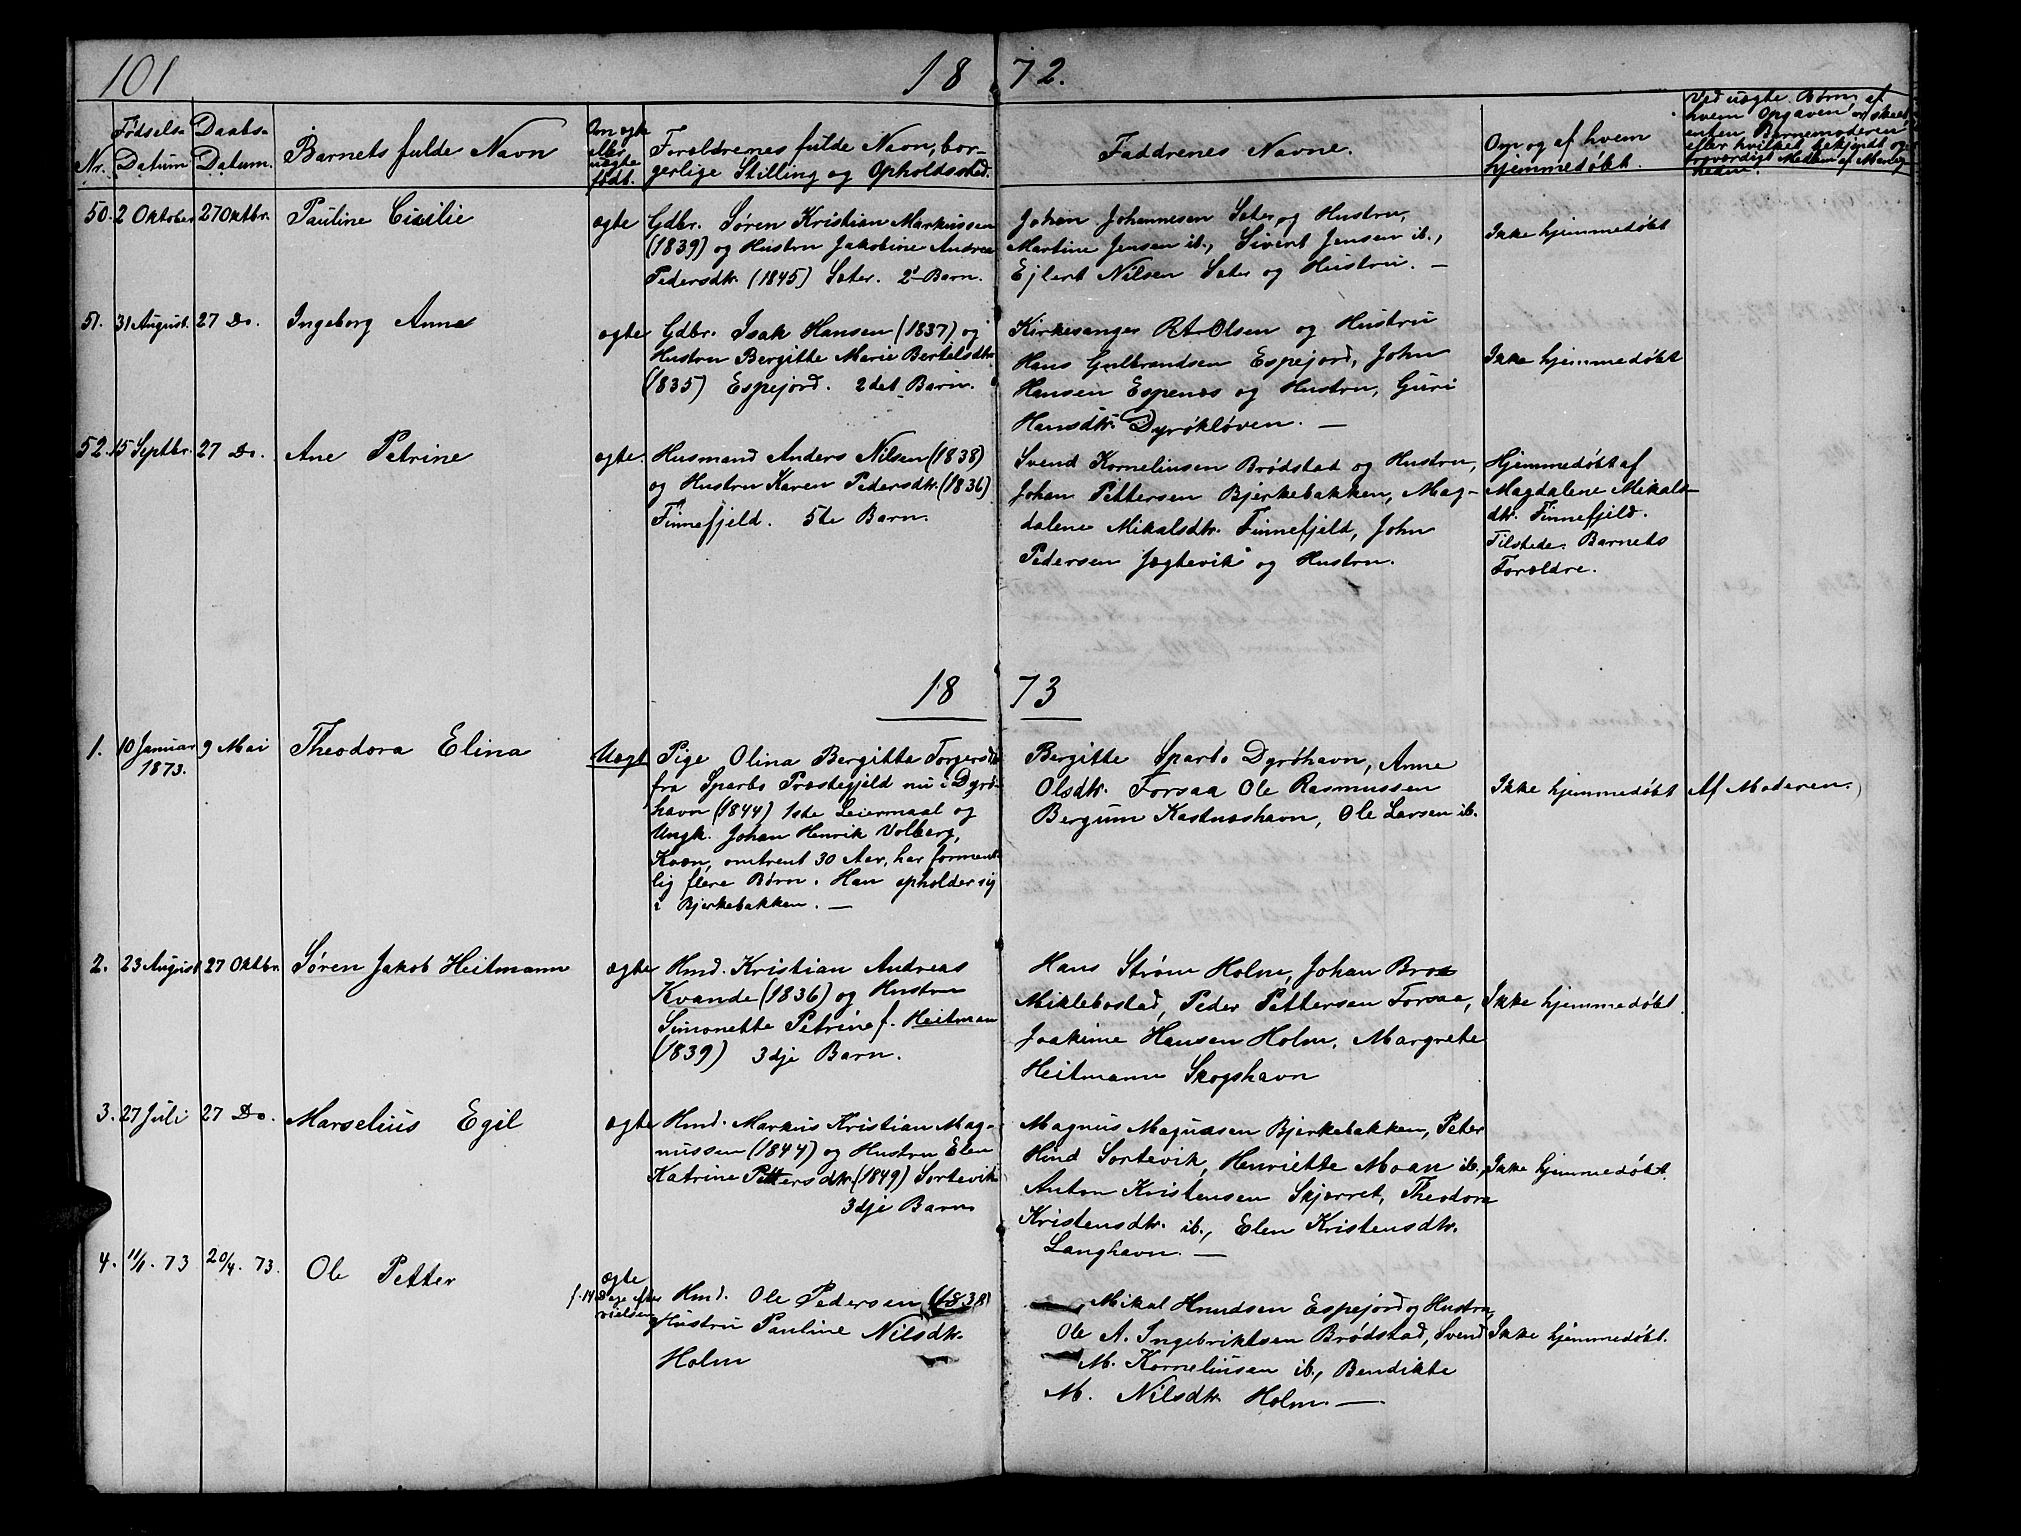 101
18 72.
Nr.
Fødsels-
Datum
Daabs-
Datum.
Barnets fulde Navn
Om ægte
eller
uægte
født.
Forældrenes fulde Navn, bor-
gerlige Stilling og Opholdssted.
Faddrenes Navne.
Om og af hvem
hjemmedøbt.
Ved uægte Børn af
hvem Opgaven er skeet
enten Barnemoderen
eller hvilket bekjendt og
50. 2 Oktober 27 Oktbr. Pauline Cicilie
ægte
Gdbr. Søren Kristian Markussen
(1839) og Hustru Jakobine Andrea
Pedersdtr. (1845) Sæter. 2d Barn.
Johan Johannesen Sæter og Hustru,
Martine Jensen ib., Sivert Jensen ib.,
Ejlert Nilsen Sæter og Hustru. —
Ikke hjemmedøbt
51. 31 August. 27 Do. Ingeborg Anna
ægte
Gdbr. Isak Hansen (1837) og
Hustru Bergitte Marie Bertelsdtr
(1835) Espejord. 2det Barn.
Kirkesanger R. A. Olsen og Hustru
Hans Gulbrandsen Espejord, John
Hansen Espenæs og Hustru, Guri
Hansdtr. Dyrøkløven. —
Ikke hjemmedøbt
52. 15 Septbr. 27 Do. Ane Petrine
ægte.
Husmand Anders Nilsen (1838)
og Hustru Karen Pedersdtr. (1836)
Finnefjeld. 5te Barn.
Svend Korneliusen Brødstad og Hustru,
Johan Pettersen Bjerkebakken, Mag-
dalene Mikalsdtr. Finnefjeld, John
Pedersen Jægtevik og Hustru.
Hjemmedøbt af
Magdalene Mikals-
dtr. Finnefjeld.
Tilstede: Barnets
Forældre.
18 73
1. 10 Januar 9 Mai Theodora Elina
1873.
Uægt
Pige Olina Bergitta Torgersd
fra Sparbo Præstegjeld nu i Dyrø-
havn (1844) 1ste Leiermaal og
Ungk. Johan Henrik Volberg,
Kvæn, omtrent 30 Aar, har forment-
lig flere Børn. Han opholder sig
i Bjerkebakken. —
Bergitte Sparbo Dyrøhavn, Anne
Olsdtr. Forsaa Ole Rasmussen
Bergum Kastnæshavn, Ole Larsen ib.
Ikke hjemmedøbt
Af Moderen.
2. 23 August 27 Oktbr. Søren Jakob Heitmann
ægte
Hmd. Kristian Andreas
Kvande (1836) og Hustru
Simonette Petrine f. Heitman
(1839) 3dje Barn.
Hans Strøm Holm, Johan Brox
Miklebostad, Peder Pettersen Forsaa,
Joakime Hansen Holm, Margrete
Heitmann Skogshavn
Ikke hjemmedøbt
3. 27 Juli 27 Do. Marselius Egil
ægte
Hmd. Markus Kristian Mag-
nussen (1844) og Hustru Elen
Katrine Pettersdtr. (1849) Sortevik
3dje Barn
Magnus Magnusen Bjerkebakken, Peter
Hind Sortevik, Henriette Moan ib.,
Anton Kristensen Skjærret, Theodora
Kristensdtr. ib., Elen Kristensdtr.
Langhavn. —
Ikke hjemmedøbt
4. 11/1. 73 20/4. 73. Ole Petter
ægte
f. 14 Dage efter
vielsen
Hmd. Ole Pedersen (1838)
Hustru Pauline Nilsdtr.
Holm
Mikal Knudsen Espejord og Hustru,
Ole A. Ingebriktsen Brødstad, Svend
M. Korneliusen ib., Bendikte
M. Nilsdtr Holm. —
Ikke hjemmedøbt.